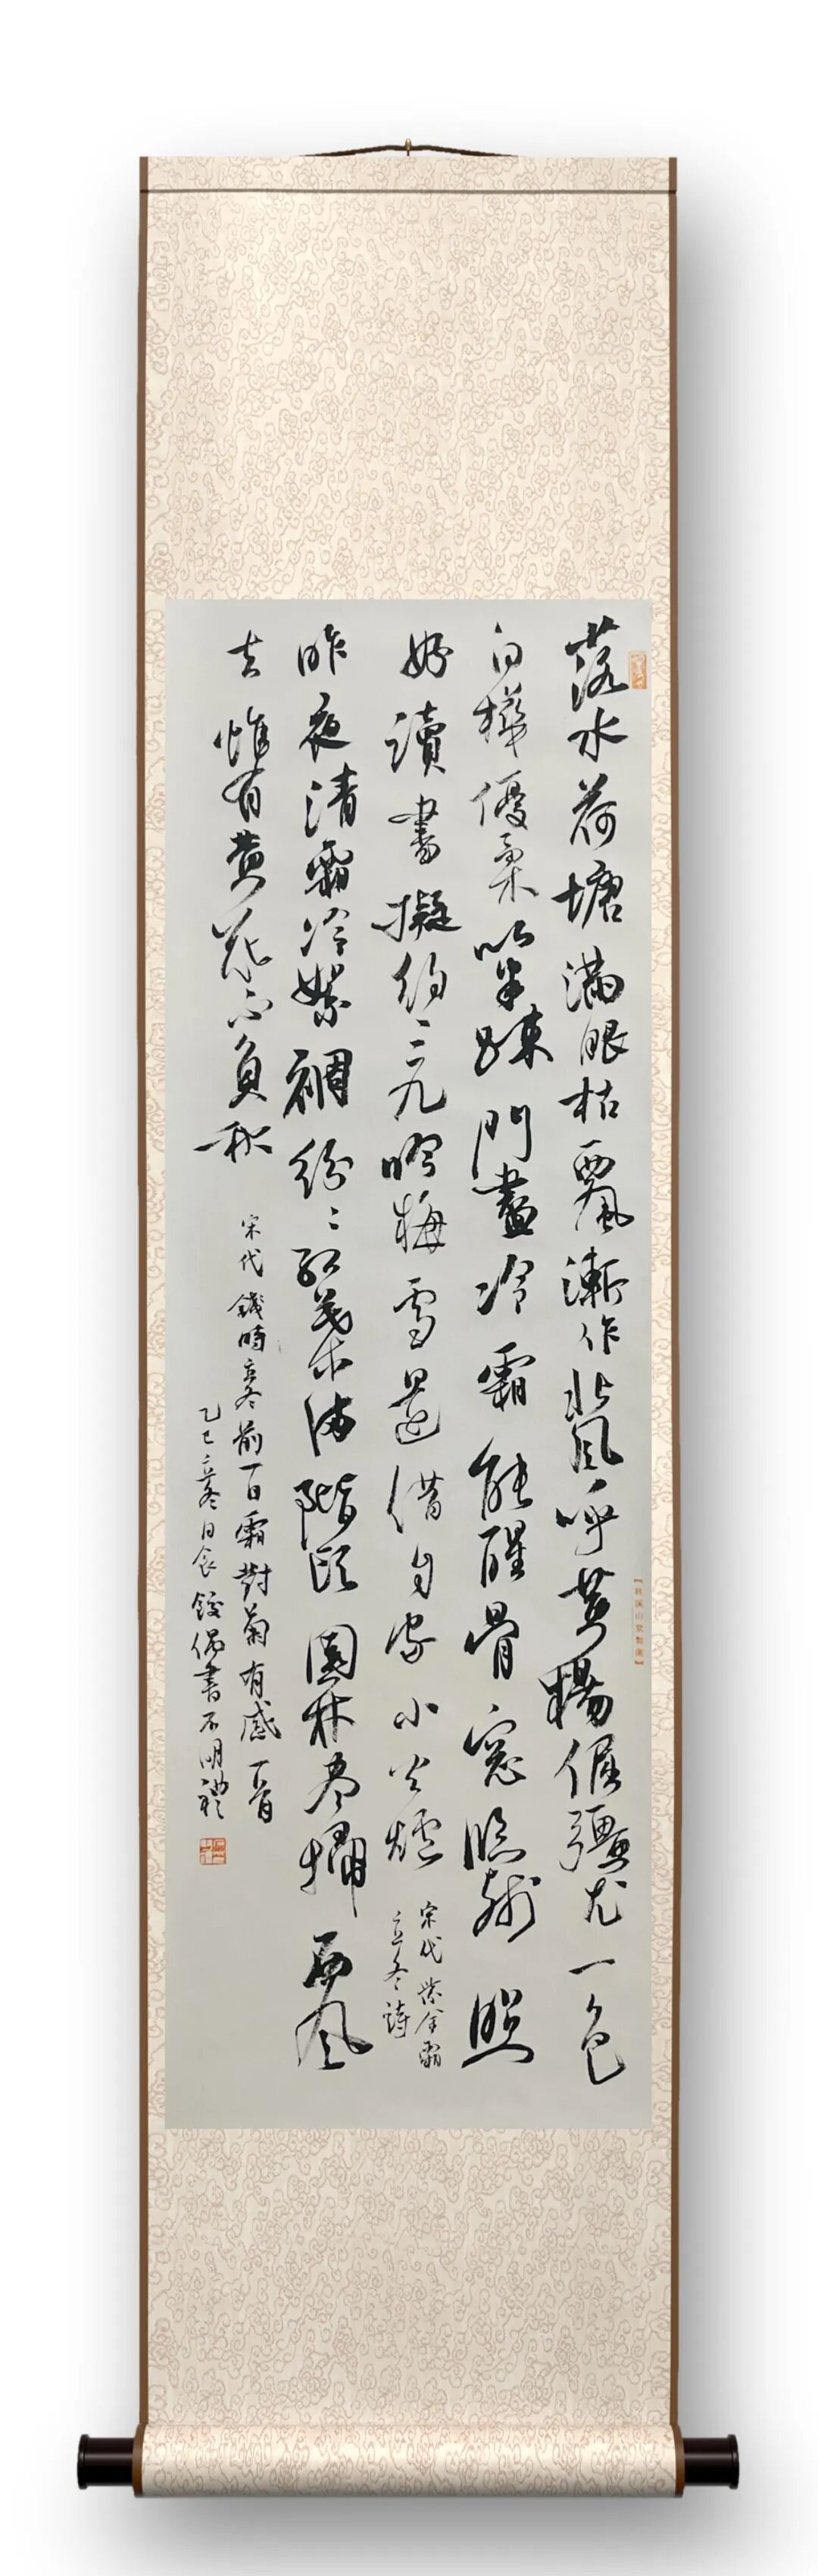 落水荷塘滿眼枯西風漸作北風呼黃楊倔彊尤一色
白樺優柔以半疎門盡冷霜能醒骨窗臨殘照
好讀書擬約三九吟梅雪還借自家小火爐
宋代紫金霜
立冬詩
昨夜清霜冷絮裯紛〻紅葉滿階頭園林盡掃西風
去惟有黃花不負秋
宋代錢時立冬前一日霜對菊有感一首
乙巳立冬日書不明禮